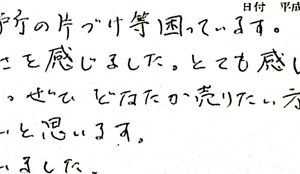 日付 平成
の片づけ等困っています。
さを感じました。とても感し
。ぜひ どなたか売りたい方
いと思います。
いました。